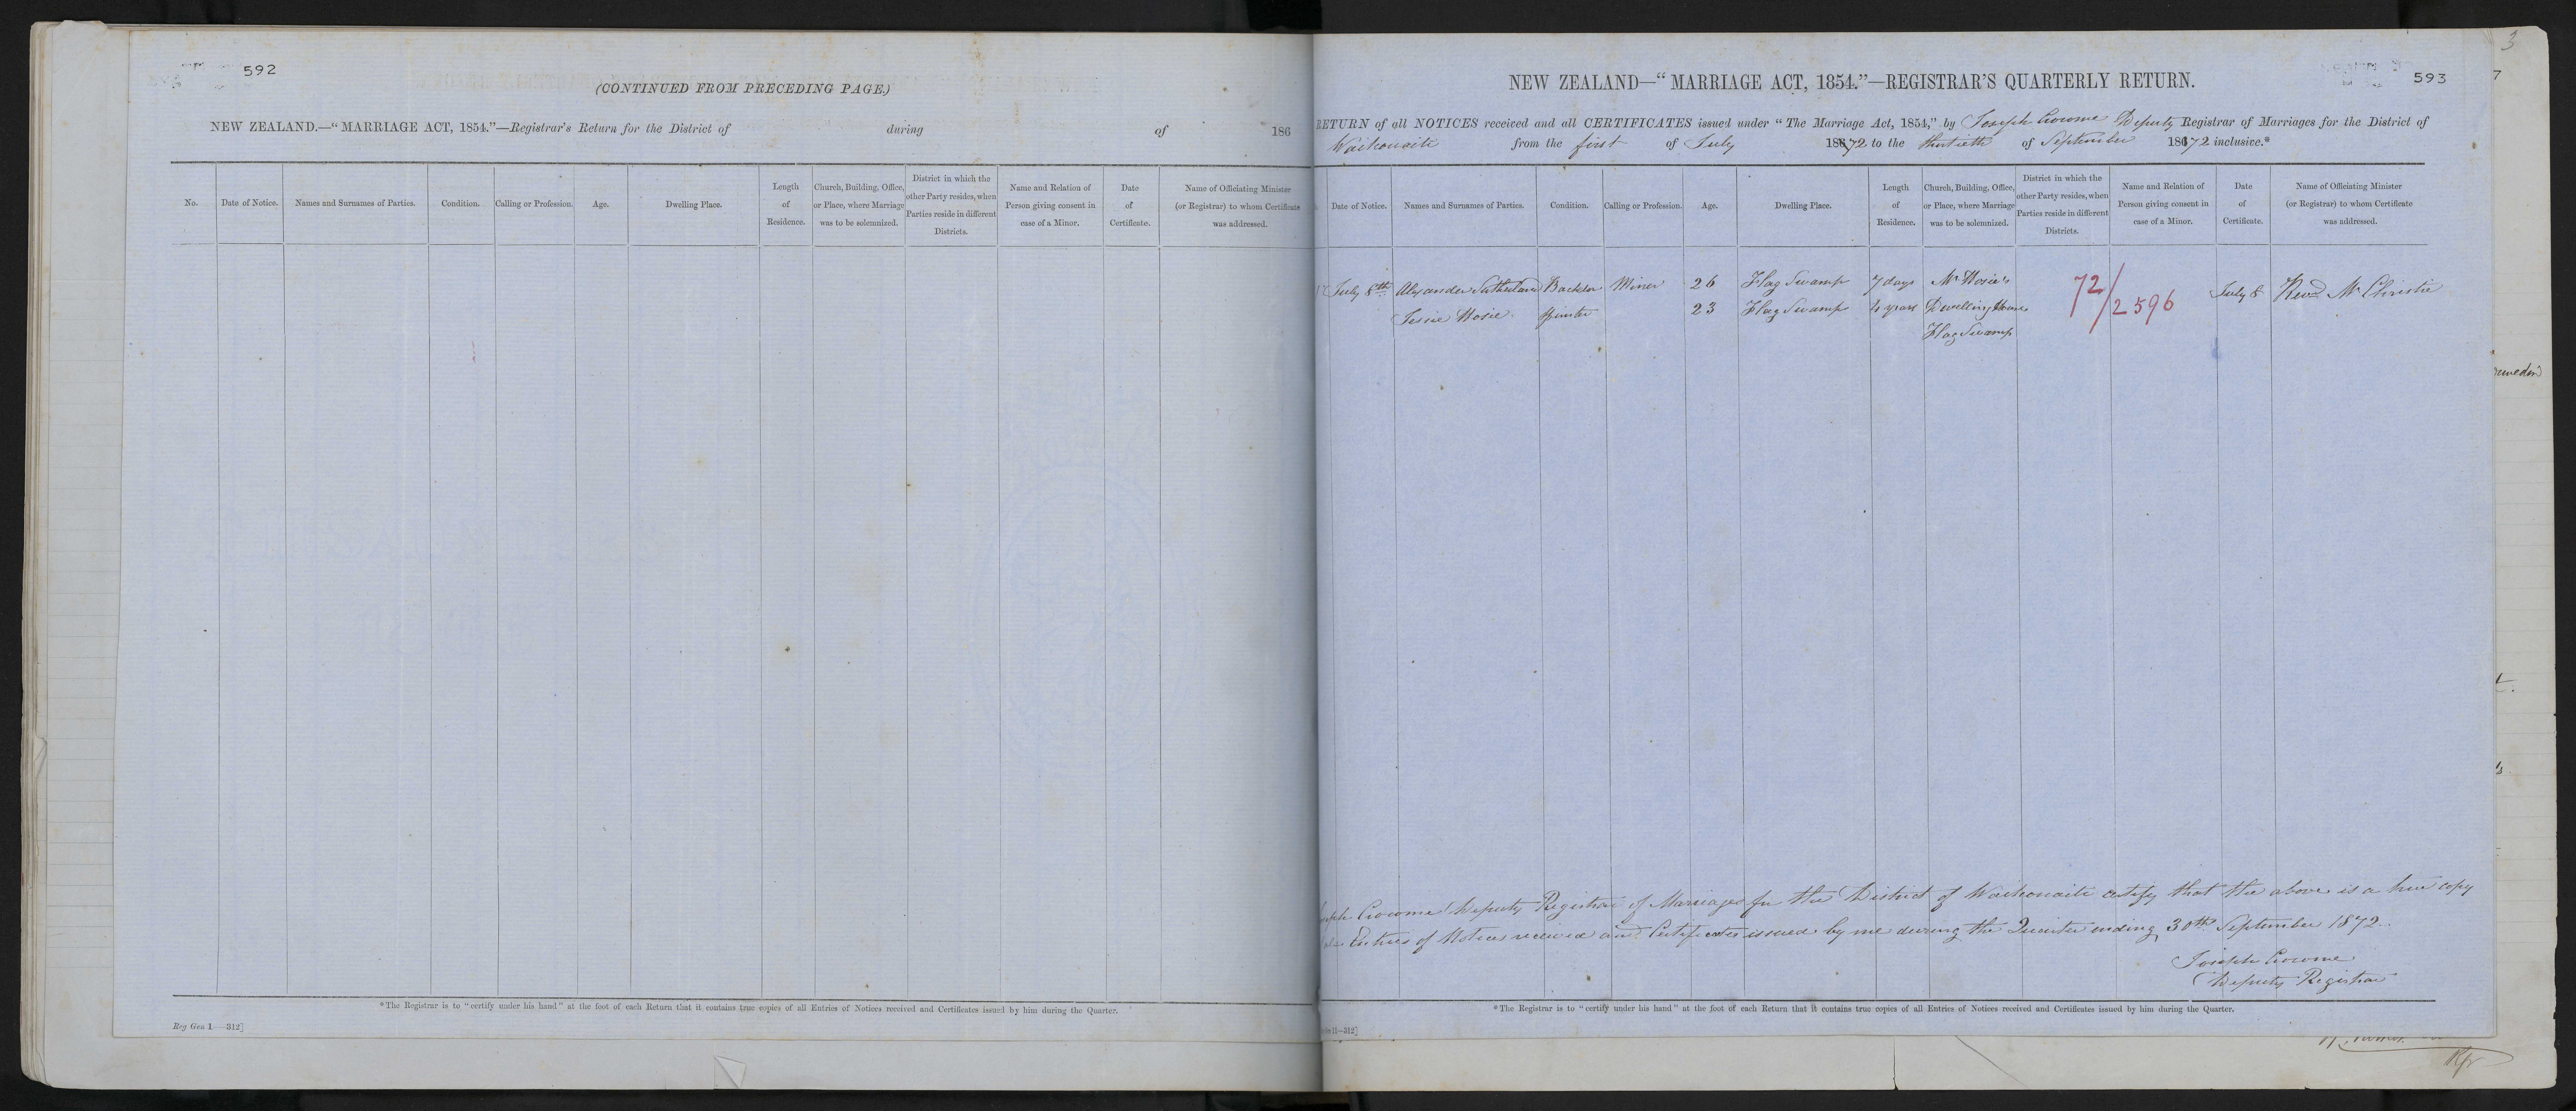 592
(CONTINUED FROM PRECEDING PAGE.)
NEW ZEALAND.—“MARRIAGE ACT, 1854.”—Registrar's Return for the District of during of 186
No. Date of Notice. Names and Surnames of Parties. Condition. Calling or Profession. Age. Dwelling Place. Length of Residence. Church, Building, Office, or Place, where Marriage was to be solemnized. District in which the other Party resides, when Parties reside in different Districts. Name and Relation of Person giving consent in case of a Minor. Date of Certificate. Name of Officiating Minister (or Registrar) to whom Certificate was addressed.
*The Registrar is to “certify under his hand” at the foot of each Return that it contains true copies of all Entries of Notices received and Certificates issued by him during the Quarter.
Reg Gen 1—312]
3
593
7
NEW ZEALAND—“MARRIAGE ACT, 1854.”—REGISTRAR'S QUARTERLY RETURN.
RETURN of all NOTICES received and all CERTIFICATES issued under “The Marriage Act, 1854,” by Joseph Crowme Deputy Registrar of Marriages for the District of
Waikouaiti from the first of July 1872 to the thirtieth of September 1872 inclusive.*
Date of Notice. Names and Surnames of Parties. Condition. Calling or Profession. Age. Dwelling Place. Length of Residence. Church, Building, Office, or Place, where Marriage was to be solemnized. District in which the other Party resides, when Parties reside in different Districts. Name and Relation of Person giving consent in case of a Minor. Date of Certificate. Name of Officiating Minister (or Registrar) to whom Certificate was addressed.
July 8th Alexander Sutherland Bachelor Miner 26 Flag Swamp 7 days Mr Hosie's 72/2596 July 8 Revd Mr Christie
Jessie Hosie Spinster 23 Flag Swamp 4 years Dwelling House
Flag Swamp
Joseph Crowme Deputy Registrar of Marriages for the District of Waikouaiti certify that the above is a true copy
Entries of Notices received and Certificates issued by me during the Quarter ending 30th September 1872.
Joseph Crowme
Deputy Registrar
*The Registrar is to “certify under his hand” at the foot of each Return that it contains true copies of all Entries of Notices received and Certificates issued by him during the Quarter.
—312]